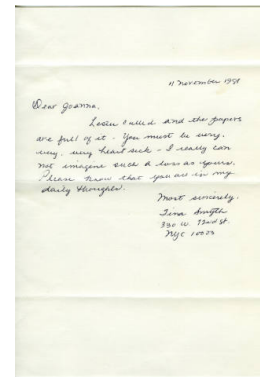 11 November 1988
Dear Joanna,
called and the papers
are full of it. You must be very,
very, very heart sick - I really can
not imagine such a loss as yours.
Please know that you are in my
daily thoughts.
Most sincerely,
Tina Smyth
330 W. 72nd St.
NYC 10023